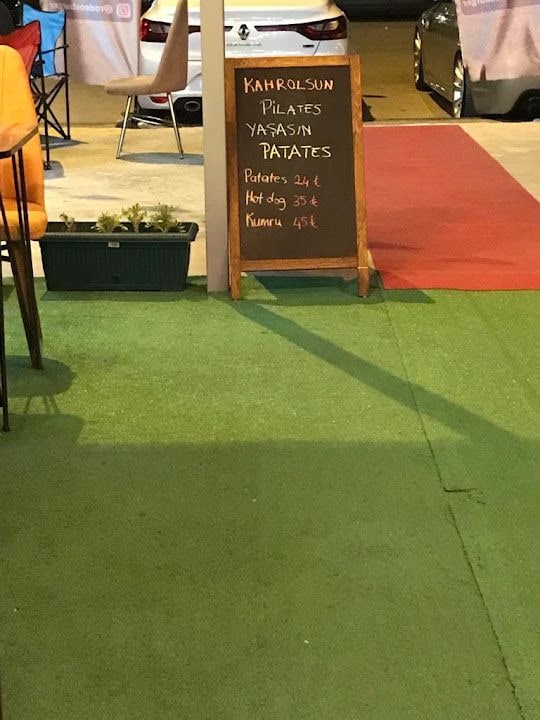 @rodeosburger
KAHROLSUN
PİLATES
YAŞASIN
PATATES
Patates 24 ₺
Hot dog 35 ₺
Kumru 45 ₺